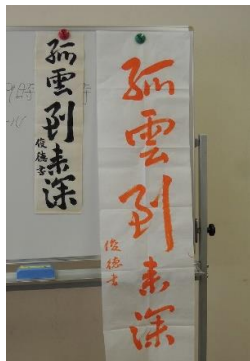 孤雲到来深
俊徳
孤雲到来深
俊徳書